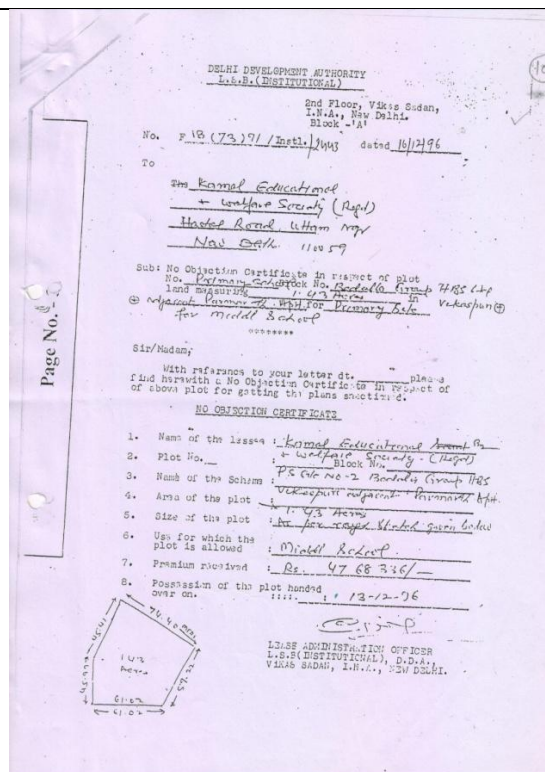 DELHI DEVELOPMENT AUTHORITY
L.S.B.(INSTITUTIONAL)
2nd Floor, Vikas Sadan,
I.N.A., New Delhi.
Block -'A'
No. F 18 (73) 91 / Instl. / 2443 dated 16/12/96
To
The Kamal Educational
+ Welfare Society (Regd)
Hastal Road, Uttam Ngr
New Delhi 110059
Sub: No Objection Certificate in respect of plot
No. Primary School Block No. Bodella Group HBS
land measuring 1.43 Acres in Vikaspuri
adjacent Parmarth Apt. for Primary
for Middl School
********
Sir/Madam,
With reference to your letter dt. ______ please
find herewith a No Objection Certificate in respect of
of above plot for getting the plans sanctioned.
NO OBJECTION CERTIFICATE
1. Name of the lessee : Kamal Educational
+ Welfare Society (Regd)
2. Plot No. ___ Block No.
3. Name of the Scheme : PS Site No-2 Bodella Group HBS
Vikaspuri adjacent Parmarth Apt.
4. Area of the plot : 1.43 Acres
5. Size of the plot : As per rough Sketch given below
6. Use for which the
plot is allowed : Middl School.
7. Premium received : Rs. 47 68 336/-
8. Possession of the plot handed
over on. ::::. : 13-12-96
LEASE ADMINISTRATION OFFICER
L.S.B(INSTITUTIONAL), D.D.A.,
VIKAS SADAN, I.N.A., NEW DELHI.
74.40
45.41
45.77
1.43
Acres
57.22
61.02
61.02
Page No.-